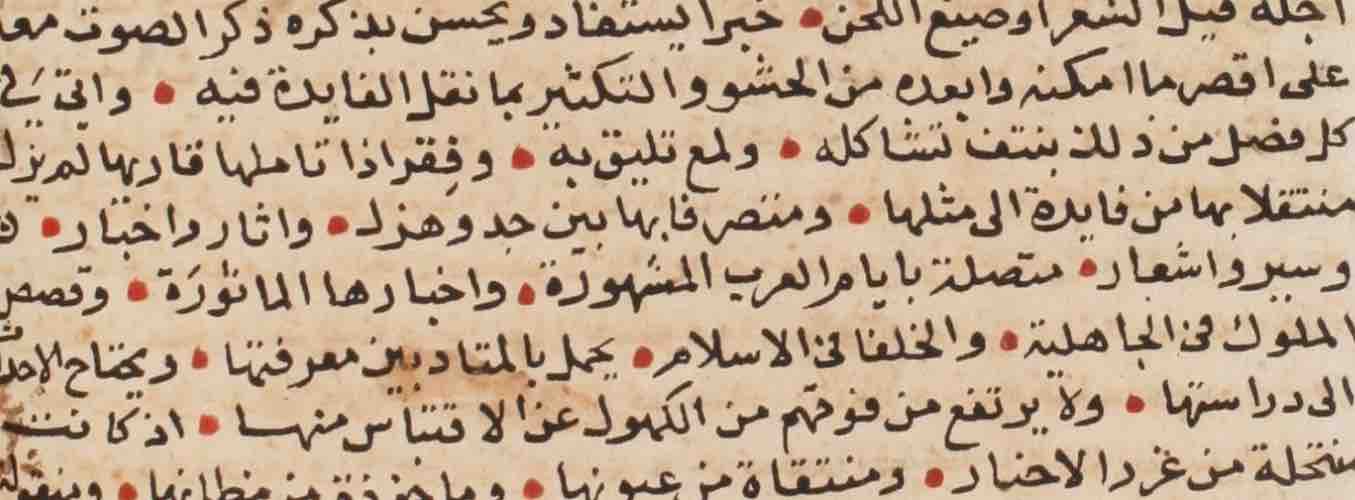 اجله قيل الشعر او صنع اللحن • خبرا يستفاد ويحسن بذكره ذكر الصوت معه
على اقصر ما امكنه وابعده من الحشو والتكثير بما تقل الفايدة فيه • واتى في
كل فصل من ذلك بنتف تشاكله • ولمع تليق به • وفقر اذا تاملها قاريها لم يزل
منتقلا بها من فايدة الى مثلها • ومتصرفا بها بين جد وهزل • واثار واخبار •
وسير واشعار • متصلة بايام العرب المشهورة • واخبارها الماثورة • وقصص
الملوك في الجاهلية • والخلفا في الاسلام • يجمل بالمتادبين معرفتها • ويحتاج الاحداث
الى دراستها • ولا يرتفع من فوقهم من الكهول عن الاقتباس منها • اذ كانت
منتخلة من غرر الاخبار • ومنتقاة من عيونها • وماخوذة من مظانها • ومنقولة